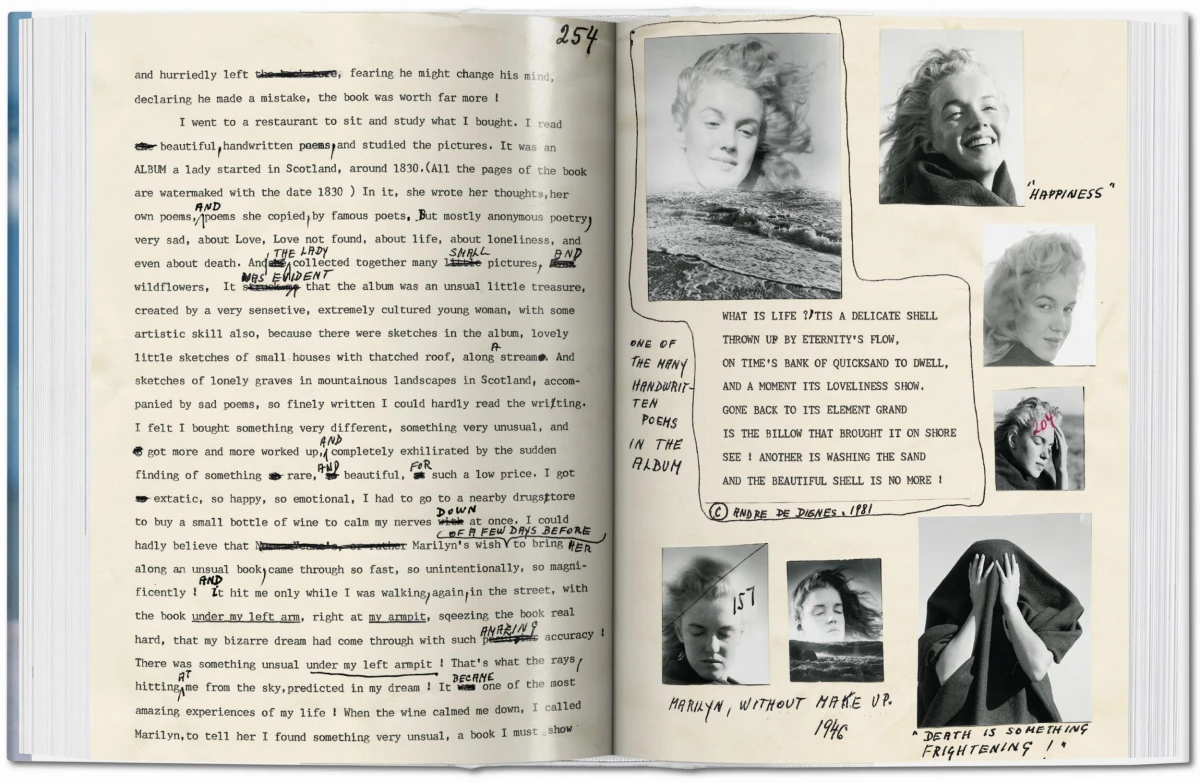 254
and hurriedly left the bookstore, fearing he might change his mind,
declaring he made a mistake, the book was worth far more !
I went to a restaurant to sit and study what I bought. I read
beautiful, handwritten poems, and studied the pictures. It was an
ALBUM a lady started in Scotland, around 1830.(All the pages of the book
are watermaked with the date 1830 ) In it, she wrote her thoughts, her
own poems, AND poems she copied, by famous poets. But mostly anonymous poetry,
very sad, about Love, Love not found, about life, about loneliness, and
even about death. And THE LADY collected together many SMALL pictures, AND
wildflowers, It WAS EVIDENT that the album was an unusual little treasure,
created by a very sensetive, extremely cultured young woman, with some
artistic skill also, because there were sketches in the album, lovely
little sketches of small houses with thatched roof, along A stream. And
sketches of lonely graves in mountainous landscapes in Scotland, accom-
panied by sad poems, so finely written I could hardly read the writing.
I felt I bought something very different, something very unusual, and
got more and more worked up, AND completely exhilirated by the sudden
finding of something rare, AND beautiful, FOR such a low price. I got
extatic, so happy, so emotional, I had to go to a nearby drugsttore
to buy a small bottle of wine to calm my nerves DOWN at once. I could
hadly believe that Marilyn's wish OF A FEW DAYS BEFORE to bring HER
along an unusual book, came through so fast, so unintentionally, so magni-
ficently ! AND It hit me only while I was walking, again, in the street, with
the book under my left arm, right at my armpit, sqeezing the book real
hard, that my bizarre dream had come through with such AMAZING accuracy !
There was something unusual under my left armpit ! That's what the rays,
hitting AT me from the sky, predicted in my dream ! It BECAME one of the most
amazing experiences of my life ! When the wine calmed me down, I called
Marilyn, to tell her I found something very unusual, a book I must show
"HAPPINESS"
ONE OF
THE MANY
HANDWRIT-
TEN
POEMS
IN THE
ALBUM
WHAT IS LIFE ? 'TIS A DELICATE SHELL
THROWN UP BY ETERNITY'S FLOW,
ON TIME'S BANK OF QUICKSAND TO DWELL,
AND A MOMENT ITS LOVELINESS SHOW.
GONE BACK TO ITS ELEMENT GRAND
IS THE BILLOW THAT BROUGHT IT ON SHORE
SEE ! ANOTHER IS WASHING THE SAND
AND THE BEAUTIFUL SHELL IS NO MORE !
© ANDRE DE DIENES. 1981
204
157
MARILYN, WITHOUT MAKE UP.
1946
"DEATH IS SOMETHING
FRIGHTENING !"